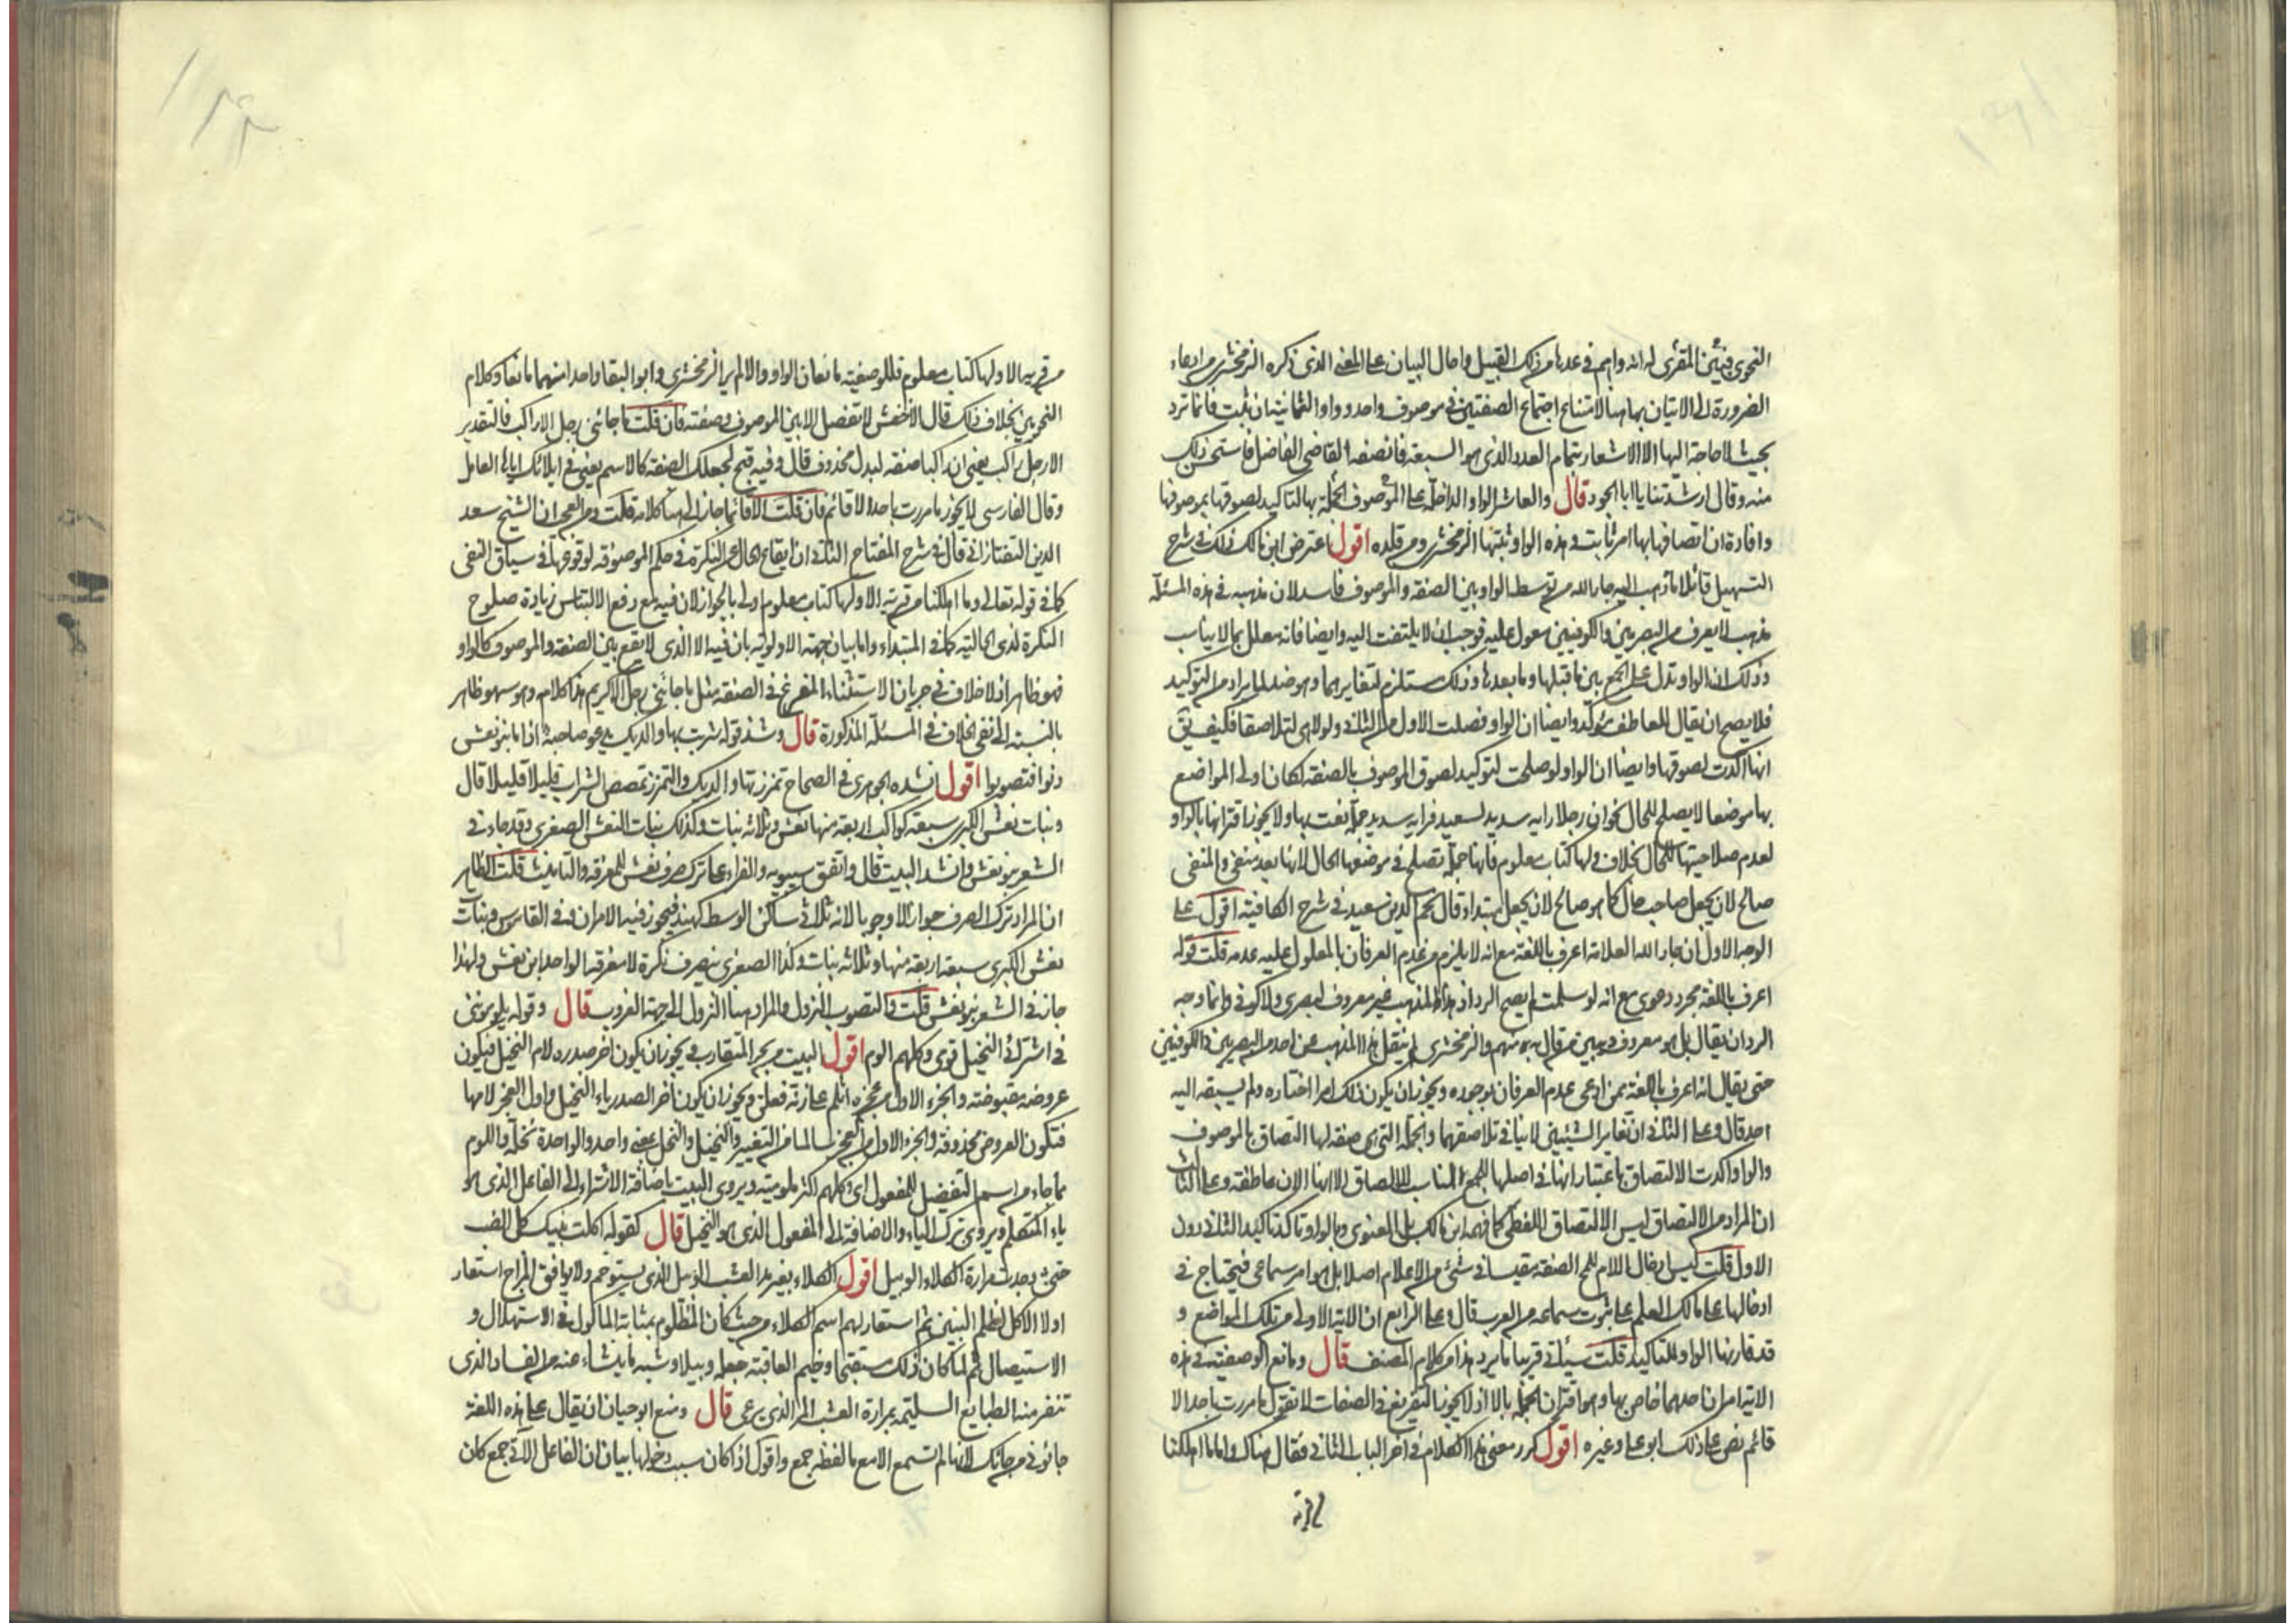 النحوى فبين المقرى له انه واهم فى عدها من ذلك القبيل واحال البيان على المعنى الذى ذكره الزمخشرى من ادعاء
الضرورة الى الاتيان بها هنا لامتناع اجتماع الصفتين فى موصوف واحد وواو الثمانية ان ثبتت فانما ترد
بحيث لا حاجة اليها الا الاشعار بتمام العدد الذى هو السبعة فانصفه القاضى الفاضل فاستحسن ذلك
منه وقال ارشدتنا يا ابا الجود قال والعاشر الواو الداخلة على الموصوف الجملة بها لتاكيد لصوقها بموصوفها
وافادة ان اتصافه بها امر ثابت وهذه الواو ثبتها الزمخشرى ومن قلده اقول اعترض ابن مالك ذلك فى شرح
التسهيل قائلا ما ذهب اليه جار الله من توسط الواو بين الصفة والموصوف فاسد لان مذهبه فى هذه المسئلة
مذهب لا يعرف من البصريين والكوفيين معول عليه فوجب ان لا يلتفت اليه وايضا فانه معلل بما لا يناسب
وذلك ان الواو تدل على الجمع بين ما قبلها وما بعدها وذلك مستلزم لتغايرهما وهو ضد لما يراد من التوكيد
فلا يصح ان يقال للعاطف مؤكد وايضا ان الواو فصلت الاول من الثانى ولولا هى لتلاصقا فكيف يق
انها اكدت لصوقها وايضا ان الواو لو صلحت لتوكيد لصوق الموصوف بالصفة لكان اولى المواضع
بها موضعا لا يصلح للحال نحو ان رجلا رايه سديد لسعيد فرايه سديد جملة نعت بها ولا يجوز اقترانها بالواو
لعدم صلاحيتها للحال بخلاف ولها كتاب معلوم فانها جملة تصلح فى موضعها الحال لانها بعد منفى والمنفى
صالح لان يجعل صاحب حال كما هو صالح لان يجعل مبتدا وقال نجم الدين سعيد فى شرح الكافية اقول على
الوجه الاول ان جار الله العلامة اعرف باللغة مع انه لا يلزم من عدم العرفان بالمعلول عليه عدمه قلت قوله
اعرف باللغة مجرد دعوى مع انه لو سلمت لم يصح الرد اذ هذا المذهب غير معروف لبصرى ولا كوفى وانما وجه
الرد ان يقال بل هو معروف ويبين من قال به منهم والزمخشرى لم ينقل هذا المذهب عن احد من البصريين والكوفيين
حتى يقال انه اعرف باللغة ممن ادعى عدم العرفان بوجوده ويجوز ان يكون ذلك امرا اختاره ولم يسبقه اليه
احد قال وعلى الثانى ان تغاير الشيئين لا ينافى تلاصقهما والجملة التى هى صفة لها التصاق بالموصوف
والواو اكدت الالتصاق باعتبار انها فى اصلها للجمع المناسب للالصاق لا انها الان عاطفة وعلى الثالث
ان المراد من الالتصاق ليس الالتصاق اللفظى كما فهمه ابن مالك بل المعنوى وبالواو تاكد تاكيد الثانى دون
الاول قلت ليس ادخال اللام للمح الصفة مقيسا فى شئ من الاعلام اصلا بل هو امر سماعى فيحتاج فى
ادخالها على مالك العلم على ثبوت سماعه من العرب قال وعلى الرابع ان الاية الاولى من تلك المواضع و
قد قارنها الواو للتاكيد قلت سيئاتى قريبا ما يرد هذا من كلام المصنف قال ومانع الوصفية فى هذه
الاية امران احدهما خاص بها وهو اقتران الجملة بالا اذ لا يجوز التفريغ فى الصفات لا تقول ما مررت باحد الا
قائم نص على ذلك ابو على وغيره اقول كرر معنى هذا الكلام فى اخر الباب الثانى فقال هناك واما ما اهلكنا
من قرية
من قرية الا ولها كتاب معلوم فللوصفية مانعان الواو والا ولم ير الزمخشرى وابو البقا واحدا منهما مانعا وكلام
النحويين بخلاف ذلك قال الاخفش لا تفصل الا بين الموصوف وصفته فان قلت ما جائنى رجل الا راكب فالتقدير
الا رجل راكب يعنى ان راكبا صفة لبدل محذوف قال وفيه قبح لجعلك الصفة كالاسم يعنى فى ايلائك اياها العامل
وقال الفارسى لا يجوز ما مررت باحد الا قائم فان قلت الا قائما جاز الى هنا كلامه قلت ومن العجب ان الشيخ سعد
الدين التفتازانى قال فى شرح المفتاح الثانى ان ايقاع الحال عن النكرة فى حكم الموصوفة لوقوعها فى سياق النفى
كما فى قوله تعالى وما اهلكنا من قرية الا ولها كتاب معلوم اولى بالجواز لان فيه مع رفع الالتباس زيادة صلوح
النكرة لذى الحالية كما فى المبتداء واما بيان جهة الاولوية بان فيه الا الذى لا يقع بين الصفة والموصوف كالواو
فهو ظاهر اذ لا خلاف فى جريان الاستثناء المفرغ فى الصفة مثل ما جائنى رجل الا كريم هذا كلامه وهو سهو ظاهر
بالنسبة الى نفى الخلاف فى المسئلة المذكورة قال وشذ قوله شربت بها والديك يدعو صاحبه اذا ما بنو نعش
دنوا فتصوبوا اقول انشده الجوهرى فى الصحاح تمززتها والديك والتمزز تمصص الشراب قليلا قليلا قال
وبنات نعش الكبرى سبعة كواكب اربعة منها نعش وثلاثة بنات وكذلك بنات النعش الصغرى وقد جاء فى
الشعر بنو نعش وانشد البيت قال واتفق سيبويه والفراء على ترك صرف نعش للمعرفة والتانيث قلت الظاهر
ان المراد ترك الصرف جوازا لا وجوبا لانه ثلاثى ساكن الوسط كهند فيجوز فيه الامران وفى القاموس وبنات
نعش الكبرى سبعة اربعة منها وثلاثة بنات وكذا الصغرى ينصرف نكرة لا معرفة الواحد ابن نعش ولهذا
جاز فى الشعر بنو نعش قلت والتصوب النزول والمراد هنا النزول الى جهة الغروب قال وقوله يلوموننى
فى اشتراء النخيل قومى وكلهم الوم اقول البيت من بحر المتقارب ويجوز ان يكون اخر صدره لام النخيل فيكون
عروضه مقبوضة والجزء الاول من عجزه اثلم على زنة فعلن ويجوز ان يكون اخر الصدر ياء النخيل واول العجز لامها
فتكون العروض محذوفة والجزء الاول من العجز سالما من التغيير والنخيل والنخل بمعنى واحد والواحدة نخلة واللوم
مما جاء من اسم التفضيل للمفعول اى وكلهم اكثر ملومية ويروى البيت باضافة الاشتراء الى الفاعل الذى هو
ياء المتكلم ويروى بترك الياء والاضافة الى المفعول الذى هو النخيل قال كقوله اكلت بنيك اكل الضب
حتى وجدت مرارة الكلاء الوبيل اقول الكلاء بغير مد العشب الوبيل الذى يستوخم ولا يوافق المزاج استعار
اولا الاكل لظلم البنين ثم استعار لهم اسم الكلاء من حيث كان المظلوم بمثابة الماكول فى الاستهلاك و
الاستيصال ثم لما كان ذلك مستقبحا وخيم العاقبة جعله وبيلا وشبه ما ينشاء عنه من الفساد الذى
تنفر منه الطبايع السليمة بمرارة العشب المر الذى يرعى قال ومنع ابو حيان ان يقال على هذه اللغة
جاؤنى من جائك لانها لم تسمع الا مع ما لفظه جمع واقول اذا كان سبب دخولها بيان ان الفاعل الآتى جمع كان